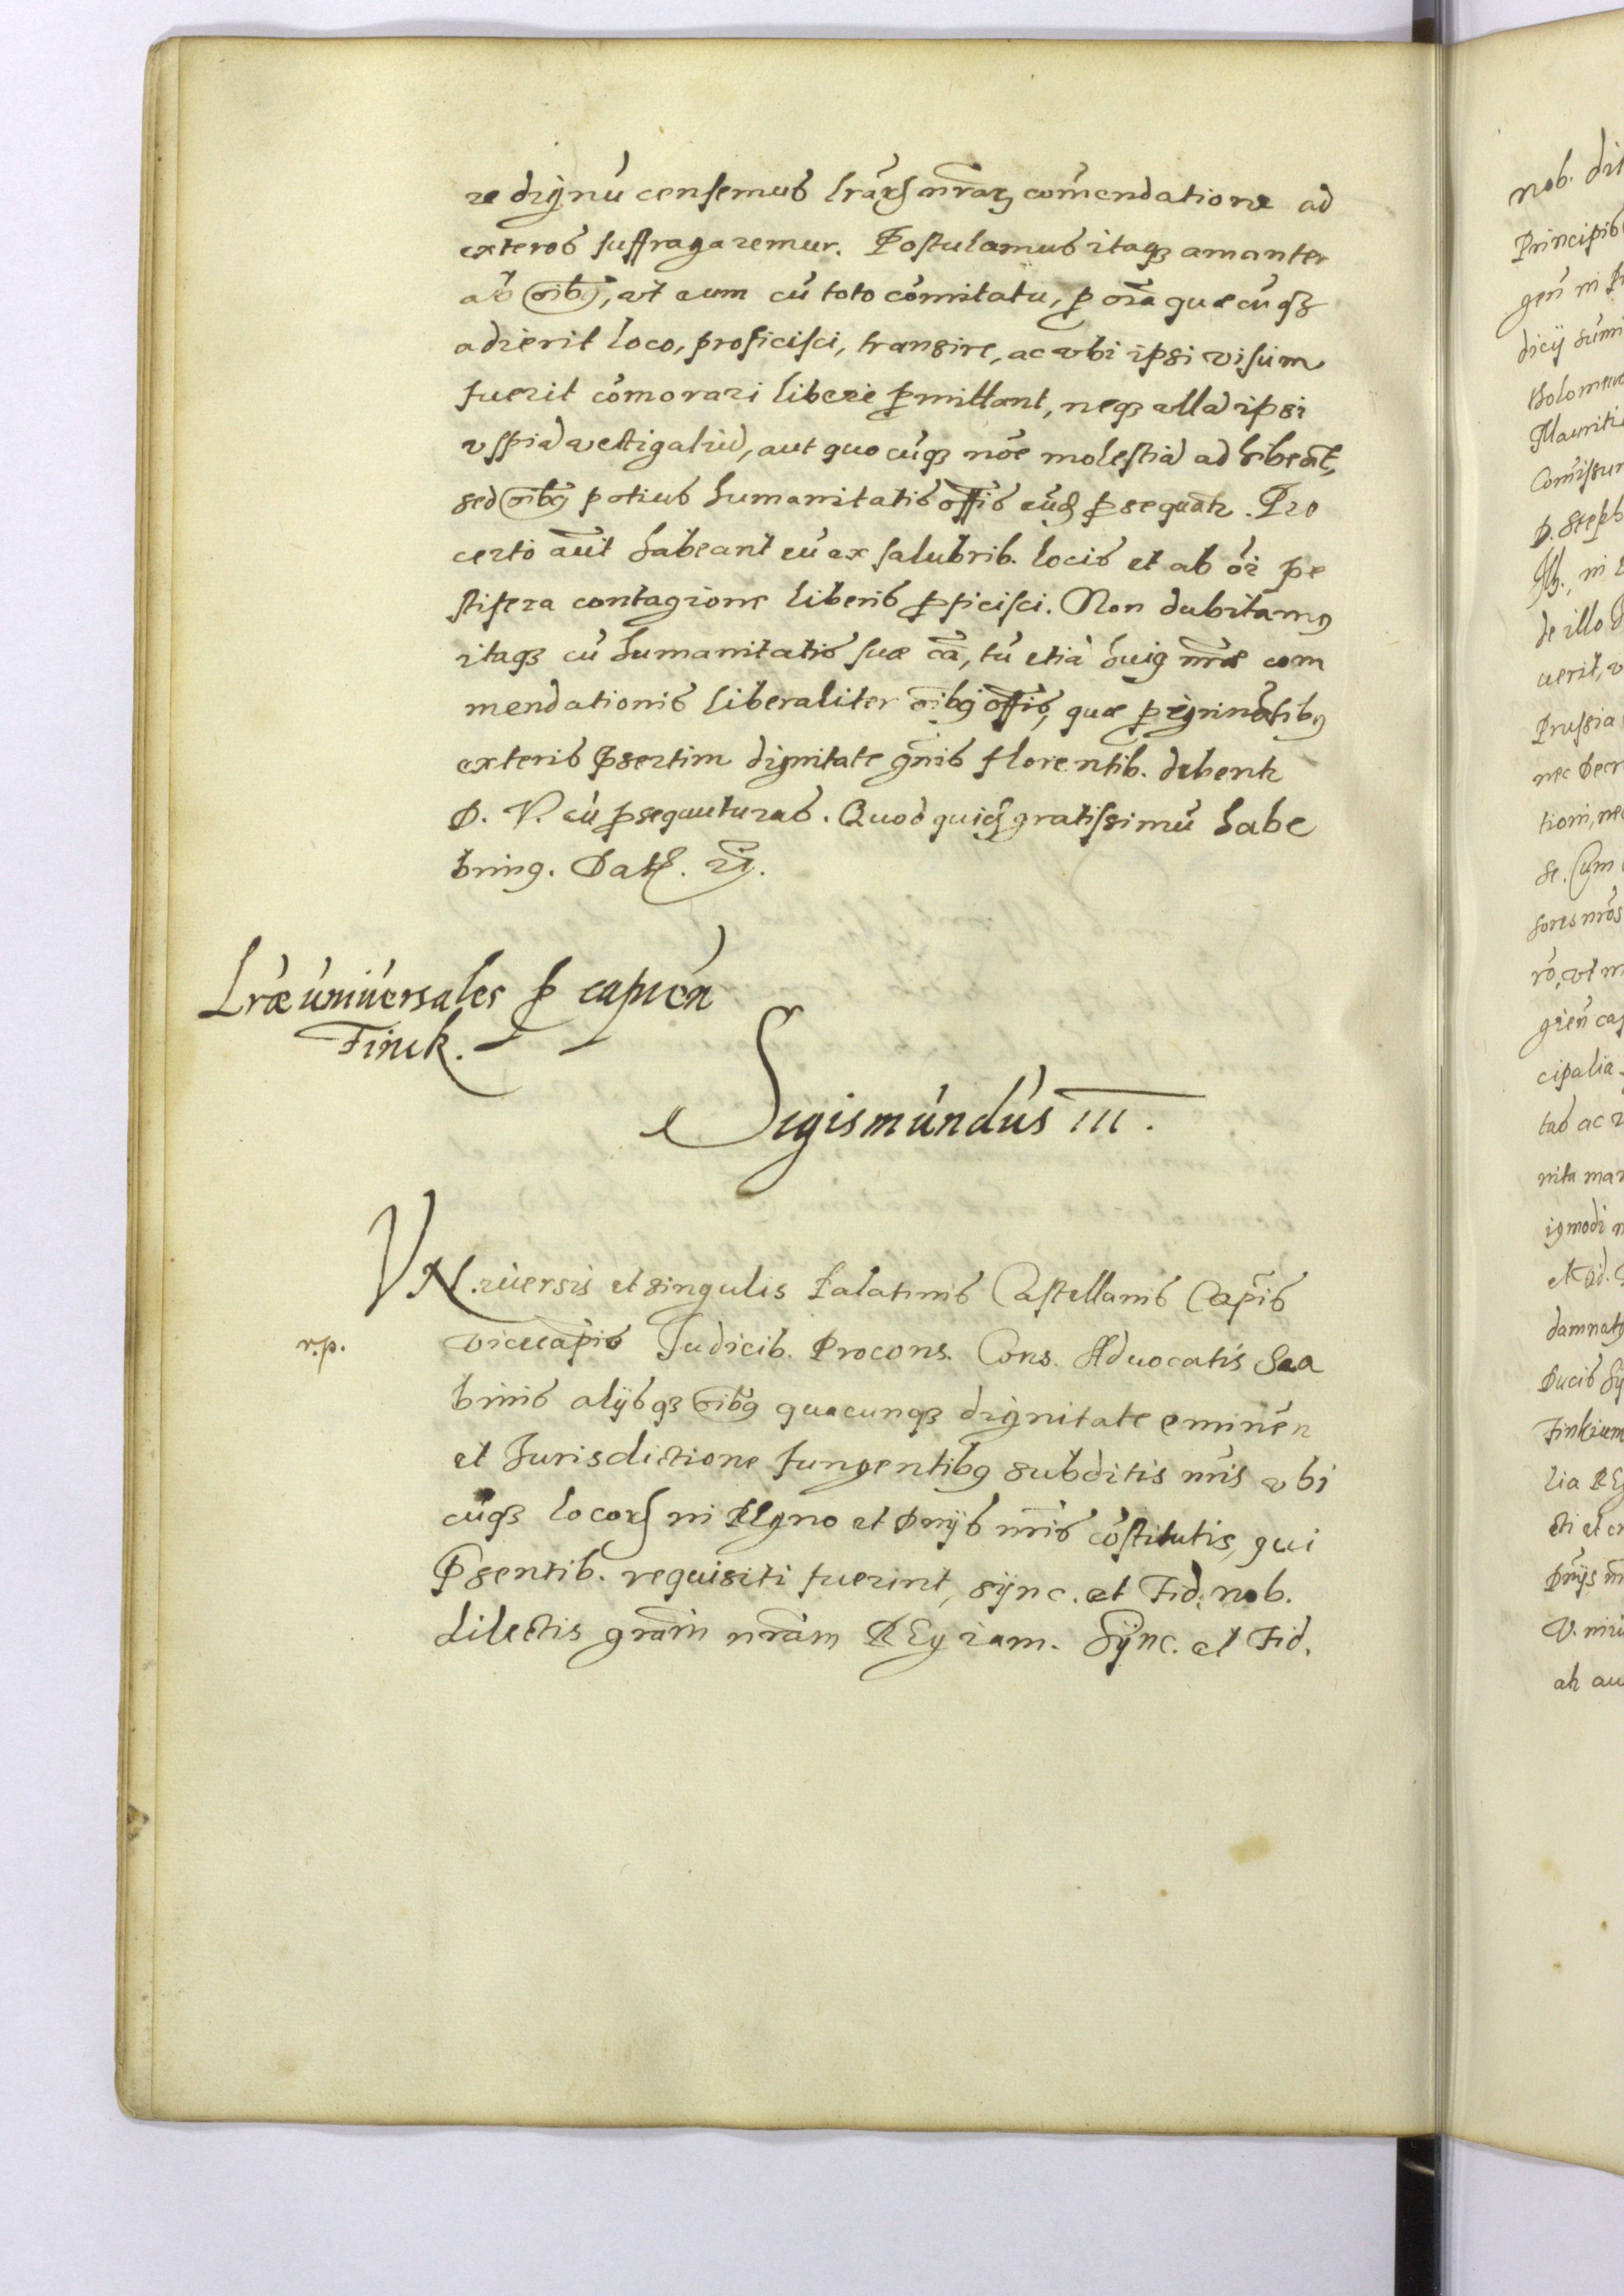 re dignu censemus lrarꝭ nrarꝫ comendatione ad
exteros suffragaremur. Postulamus itaqꝫ amanter
ab oibꝰ, vt eum cu toto comitatu, ꝑ oia quaecuqꝫ
adierit loco, proficisci, transire, ac vbi ipsi visum
fuerit comorari libere ꝑmittant, neqꝫ vlla ipsi
vspia vectigaliu, aut quocuqꝫ noe molestia adhibeat,
sed oibꝰ potius humanitatis offis eu ꝑsequatr. Pro
certo aut habeant eu ex salubrib. locis et ab oi pe
stifera contagione liberis ꝓficisci. Non dubitamꝰ
itaqꝫ cu humanitatis suae ca, tu etia huiꝰ nrae com
mendationis liberaliter oibꝰ offis, quae peregrinatibꝰ
exteris p̄sertim dignitate gnis florentib. debentr
D. V. eu ꝓsequuturas. Quod quidꝭ gratissimu habe
bimꝰ. Datꝭ. rt.
Lrae universales ꝑ capien
Finck.
Sigismundus III.
VNiversis et singulis Palatinis Castellanis Capis
r.p.
vicecapis Judicib. Procons. Cons. Aduocatis Sca
binis alijsqꝫ oibꝰ quacunqꝫ dignitate eminen
et Jurisdictione fungentibꝰ subditis nris vbi
cuqꝫ locorꝭ in REgno et Dnijs nris costitutis, qui
p̄sentib. requisiti fuerint, sync. et Fid. nob.
dilectis gram nram REgiam. Sync. et Fid.
nob. dil
Principib
dicij sum
Mauriti
D. Steph
de illo
uerit, v
Prussia
nec Decr
tioni, ne
se. Cum
sores nros
ro, vt m
gien cap
cipalia
tas ac
nita man
et Fid.
damnatꝰ
Ducis
Finkium
lia REg
cti et
Dnijs